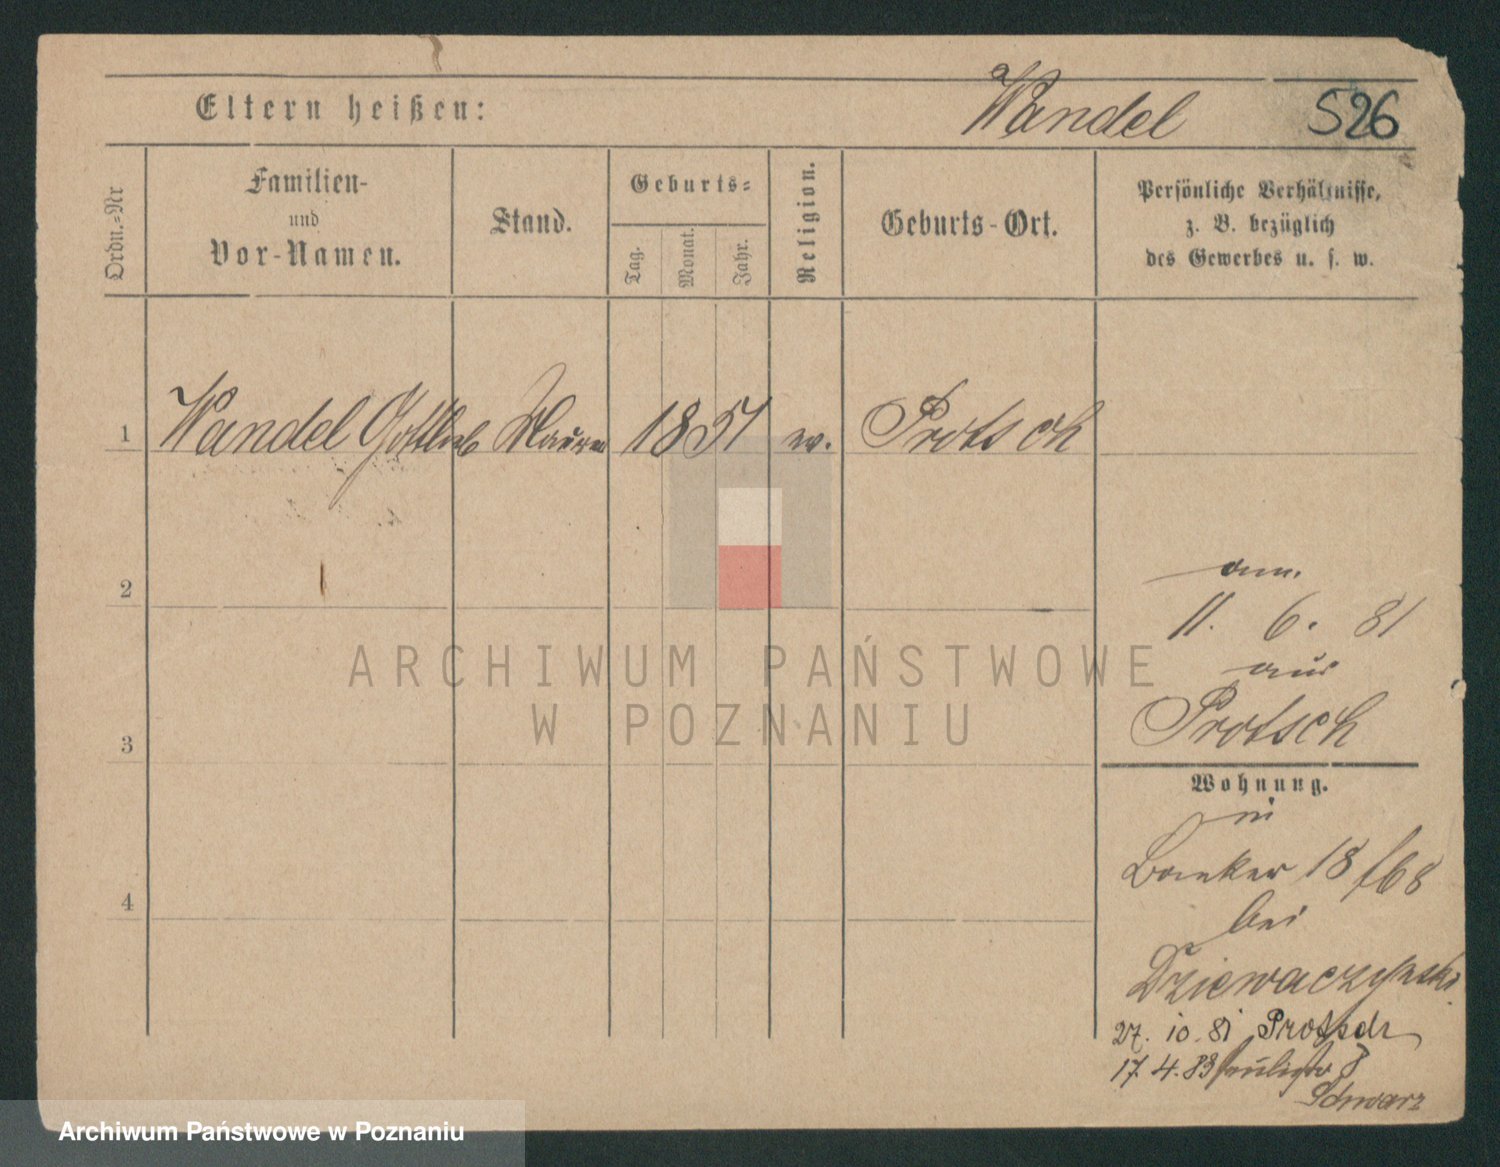 Eltern heißen: Wandel 526
Ordn.-Nr
Familien-
und
Vor-Namen.
Stand.
Geburts-
Tag.
Monat.
Jahr.
Religion.
Geburts-Ort.
Persönliche Verhältnisse,
z. B. bezüglich
des Gewerbes u. s. w.
1 Wandel Gottlieb Maurer 1851 ev. Protsch
2
3
4
am
11. 6. 81
aus
Protsch
Wohnung.
in
18/68
bei
Dziewaczynski
27. 10. 81 Protsch
17. 4. 83 8
Schwarz
ARCHIWUM PAŃSTWOWE
W POZNANIU
Archiwum Państwowe w Poznaniu